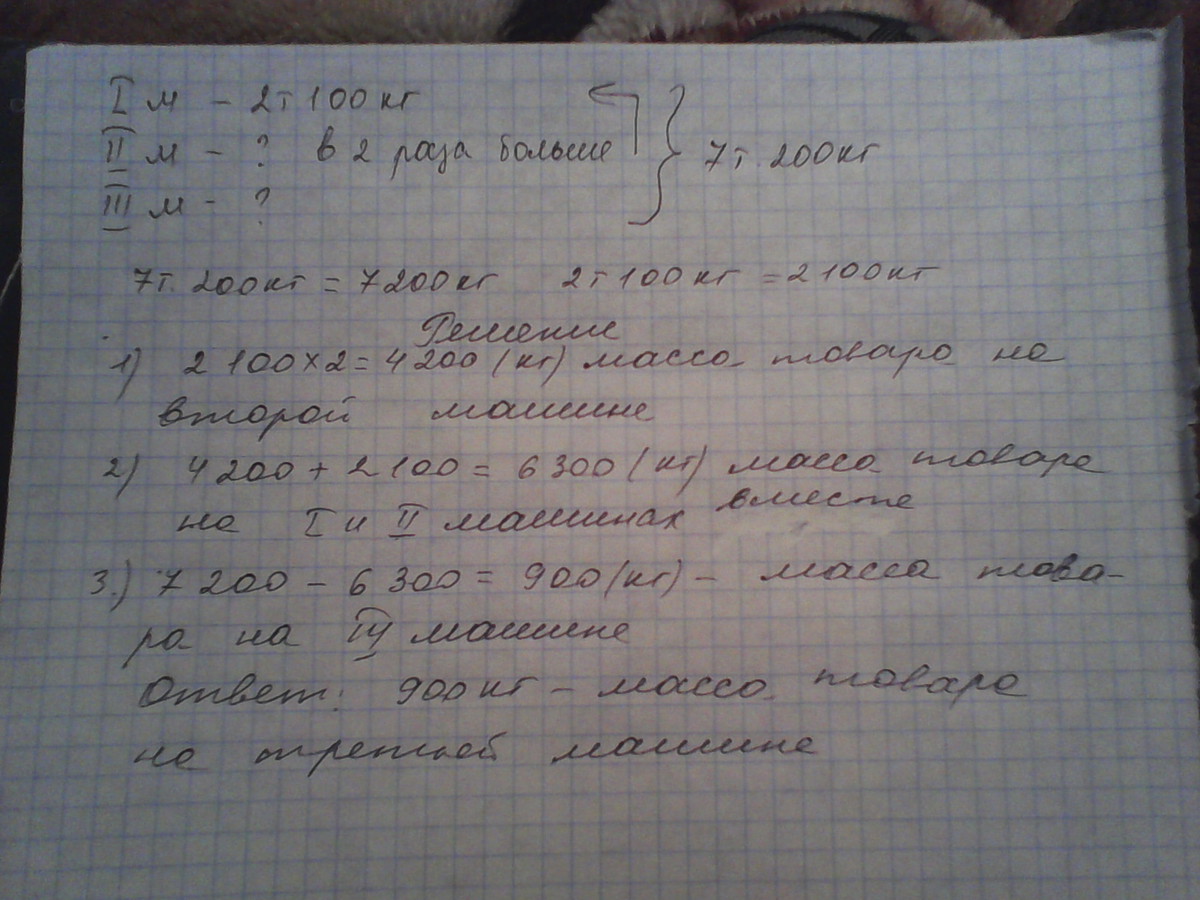 I м - 2т 100 кг
II м - ? в 2 раза больше
7т. 200кг
III м - ?
7т. 200кг = 7 200кг 2т 100 кг = 2 100кг
Решение
1) 2 100 x 2 = 4 200 (кг) масса товара на
второй машине
2) 4 200 + 2 100 = 6 300 (кг) масса товара
на I и II машинах вместе
3.) 7 200 - 6 300 = 900 (кг) - масса това-
ра на III машине
Ответ: 900 кг - масса товара
на третьей машине